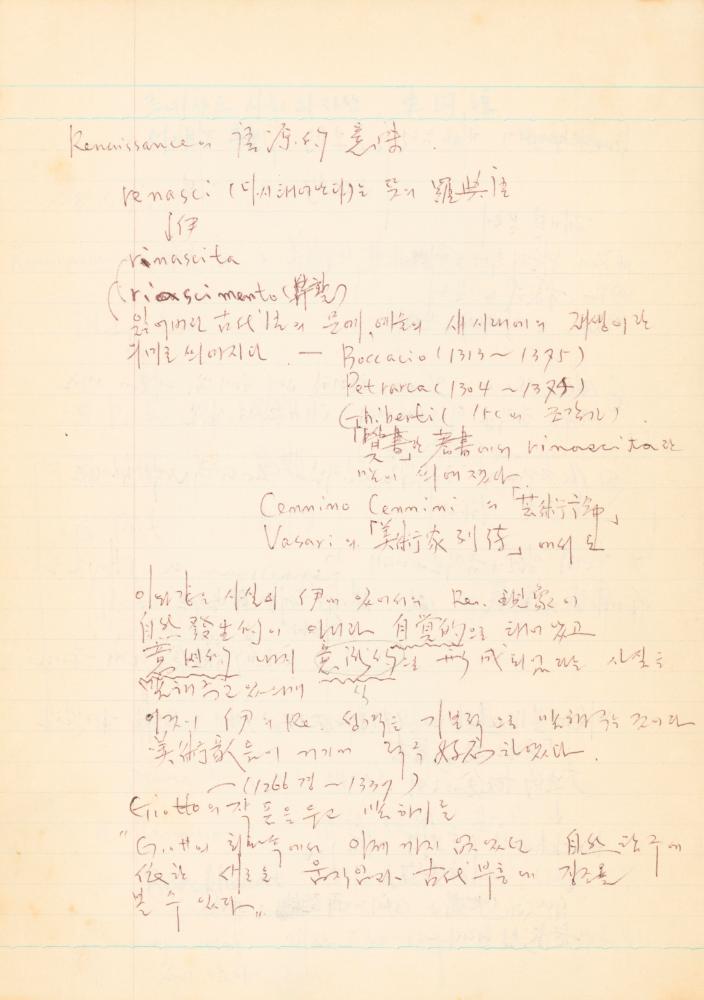 Renaissance의 語源的 意味.
renasci (다시 태어난다)는 뜻의 羅典語
↓伊
rinascita
rinascimento
잃어버린 古代 의 문예, 예술의 새시대에의 재생이란
의미로 씌어지다. — Boccacio (1313~1375)
Petrarca (1304~1374)
Ghiberti ( 15C의 조각가)
「覺書」란 著書에서 rinascita란
말이 씌어졌다.
Cennino Cennini의 「芸術
Vasari의 「美術家列傳」에서도
이와같은 사실의 伊에 있어서의 Ren. 現象이
自然發生的이 아니라 自覚的으로 태어났고
내지 意識的으로 形成되었다는 사실을
말해주고 있는데
이것이 伊의 Re. 성격을 기본적으로 말해주는 것이다
美術 들이 여기에
(1266경~1337)
Giotto의 작품을 두고 말하기를
"Giotto의 회화속에서 이제까지 없었던 自然
새로운 움직임과 古代부흥에
볼 수 있다"